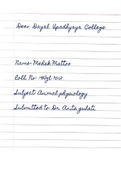 Deen Dayal Upadhyaya College
Name- Mehak Mattoo
Roll No-
Subject- Animal physiology
Submitted to- Dr. Anita gulati